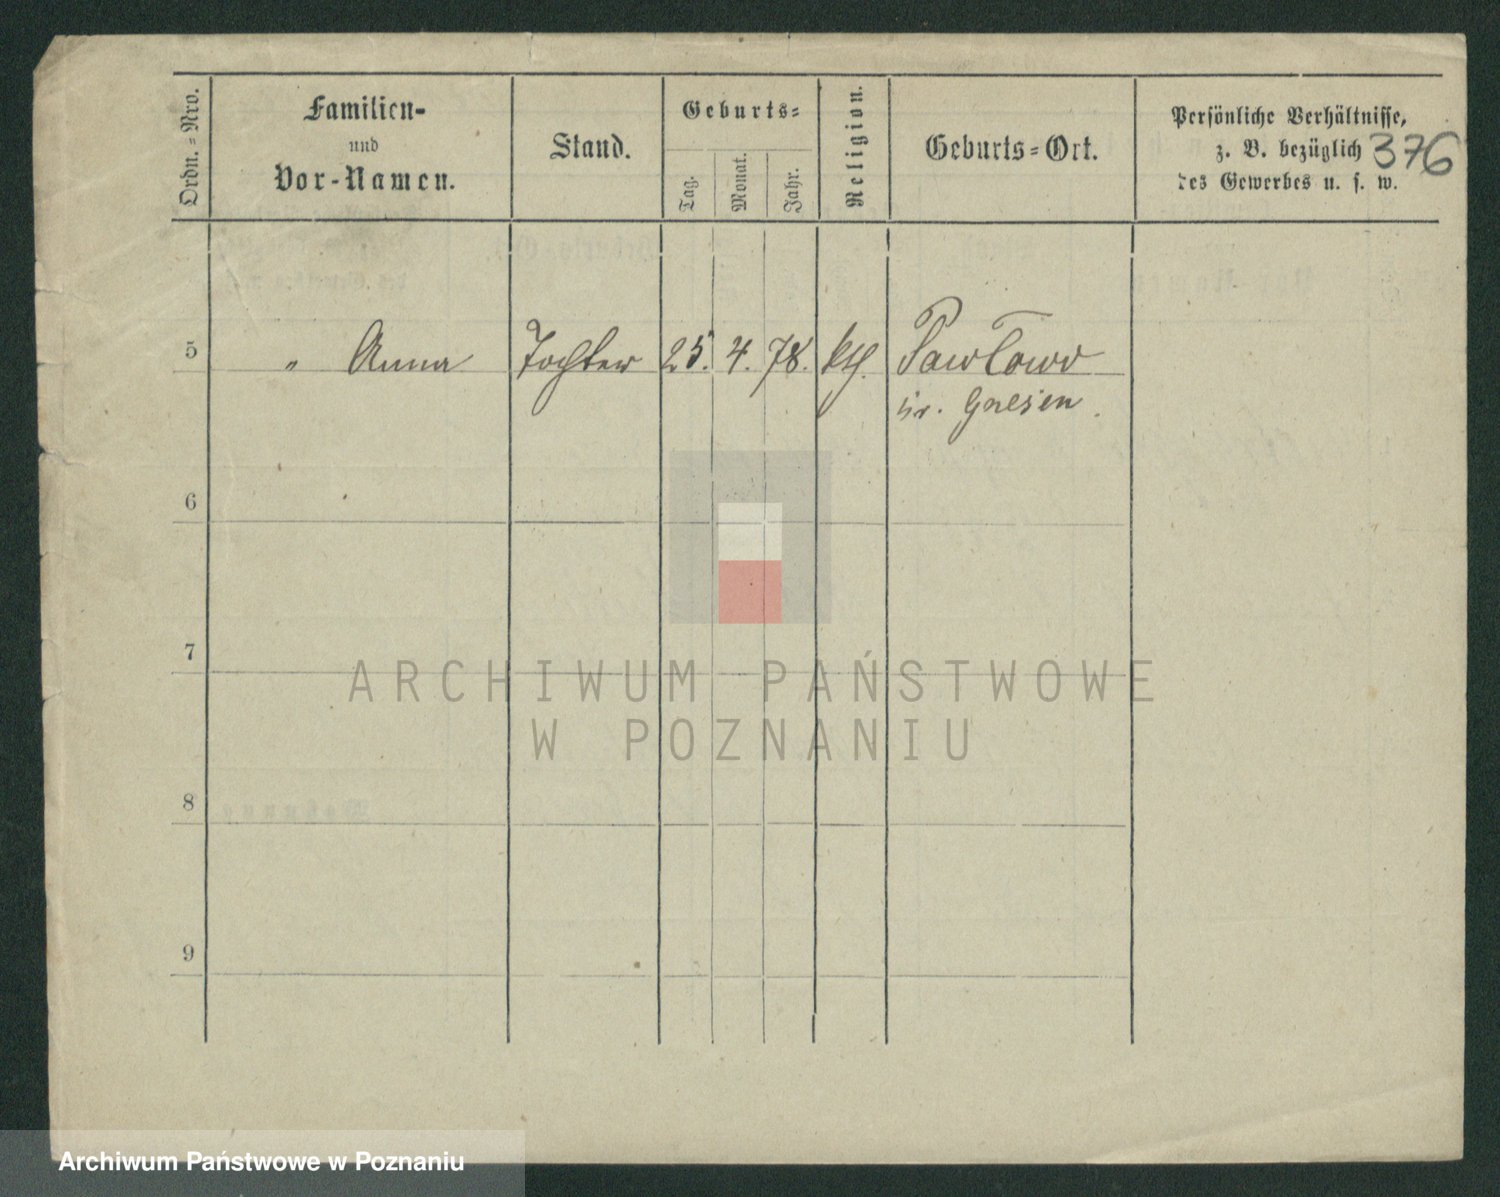 Ordn.=Nro.
Familien-
und
Vor-Namen.
Stand.
Geburts=
Tag.
Monat.
Jahr.
Religion.
Geburts=Ort.
Persönliche Verhältnisse,
z. B. bezüglich
des Gewerbes u. s. w.
376
5 " Anna Tochter 25. 4. 78. kth. Pawłowo
Kr. Gnesen.
6
7
8
9
ARCHIWUM PAŃSTWOWE
W POZNANIU
Archiwum Państwowe w Poznaniu